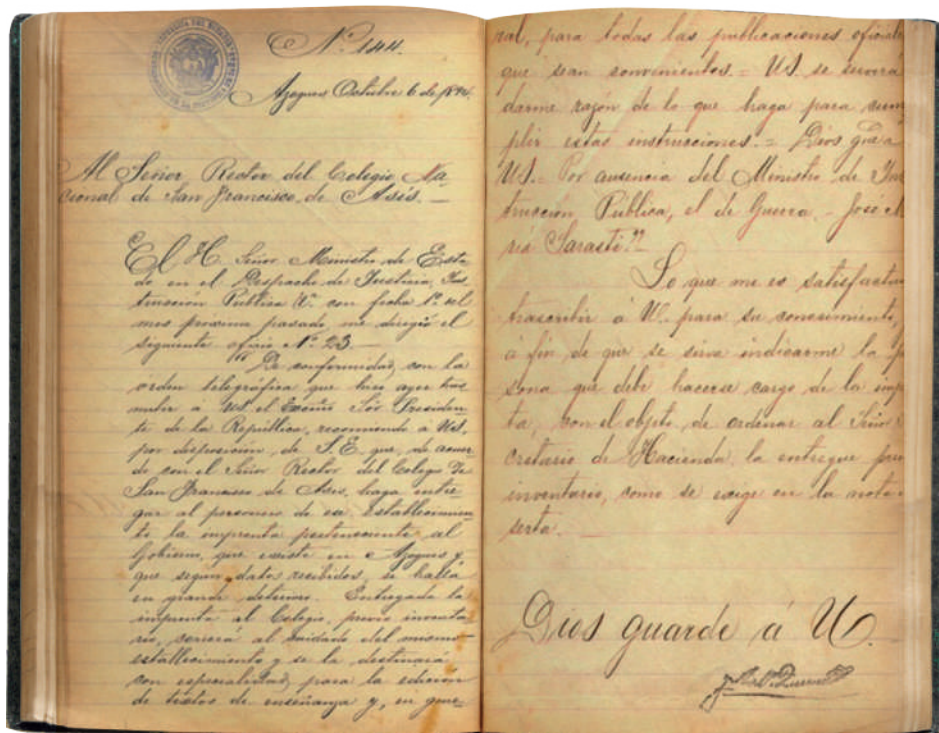 Nº 144.
Azogues Octubre 6 de 1890.
Al Señor Rector del Colegio Na-
cional de San Francisco de Asís. —
El H. Señor Ministro de Esta
do en el Despacho de Justicia, Ins
truccion Publica &ª con fecha 1º del
mes próximo pasado, me dirigió el
siguiente oficio Nº 23. —
"De conformidad con la
orden telegráfica que hizo ayer tras
mitir á US. el Excmo Sor Presiden-
te de la República, recomiendo á US.,
por disposición de S. E. que, de acuer
do con el Señor Rector del Colegio de
San Francisco de Asis, haga entre
gar al personero de ese Establecimien-
to la imprenta perteneciente al
Gobierno, que existe en Azogues y
que segun datos recibidos, se halla
en grande deterioro. Entregada la
imprenta al Colegio, previo inventa
rio, correrá al cuidado del mismo
establecimiento y se la destinará
con especialidad para la edicion
de textos de enseñanza y, en gene-
ral, para todas las publicaciones oficiale
que sean convenientes. = US. se servirá
darme razón de lo que haga para cum
plir estas instrucciones. = Dios gue a
US. = Por ausencia del Ministro de Ins
trucción Pública, el de Guerra. = José M
ría Sarasti."
Lo que me es satisfacto
trascribir á U. para su conocimiento,
á fin de que se sirva indicarme la p
sona que debe hacerse cargo de la imp
ta, con el objeto de ordenar al Señor
cretario de Hacienda, la entregue prev
inventario, como se exige en la nota
serta. —
Dios guarde á U.